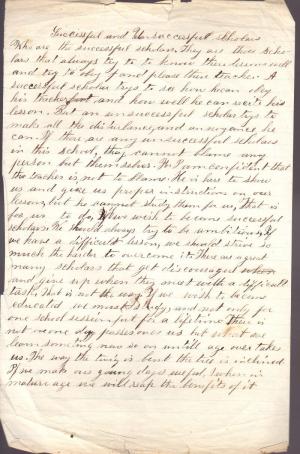 Successful and Unsuccessful scholars
Who are the successful scholars. They are those scho-
lars that always try to to know their lesson well
and try to obey and please their teacher. A
successful scholar trys to see how he can obey
his teacher and how well he can recite his
lesson. But an unsuccessful scholar trys to
make all the disturbance and annoyance he
can. If there are any unsuccessful scholars
in this school, they cannot blame any
person but themselves. For I am confident that
the teacher is not to blame. He is here to show
us and give us proper instruction on our
lesson, but he cannot study them for us, That is
for us to do, If we wish to become successful
scholars. We should always try to be ambitious, If
we have a difficult lesson, we should strive so
much the harder to overcome it. There are a great
many scholars that get discouraged
and give up when they meet with a difficult
task. That is not the way. If we wish to become
educated we must study, and not only for
one school session but for a lifetime. There is
not one day passes over us but what we
learn something new so on untill age over takes
us. The way the twig is bent the tree is inclined.
If we make our young days useful, when in
mature age we will reap the benefits of it